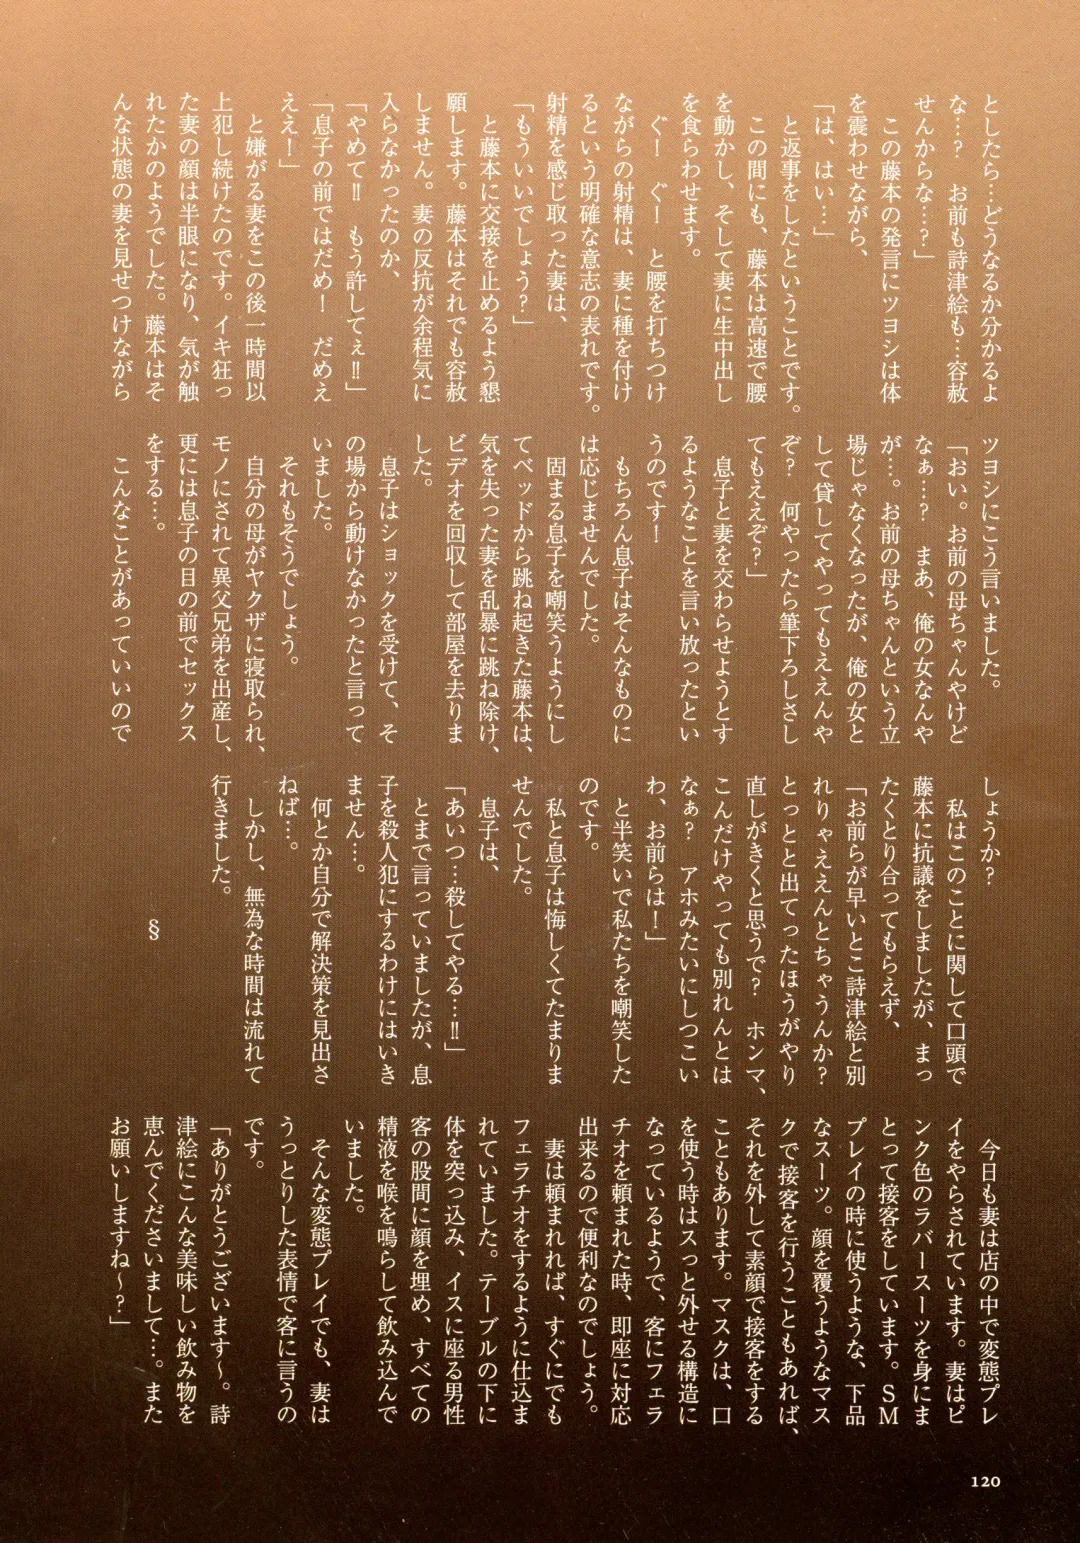 としたら…どうなるか分かるよ
な…? お前も詩津絵も…容赦
せんからな…?」
この藤本の発言にツヨシは体
を震わせながら、
「は、はい…」
と返事をしたということです。
この間にも、藤本は高速で腰
を動かし、そして妻に生中出し
を食らわせます。
ぐ! ぐ! と腰を打ちつけ
ながらの射精は、妻に種を付け
るという明確な意志の表れです。
射精を感じ取った妻は、
「もういいでしょう?」
と藤本に交接を止めるよう懇
願します。藤本はそれでも容赦
しません。妻の反抗が余程気に
入らなかったのか、
「やめて!! もう許してぇ!!」
「息子の前ではだめ! だめえ
ええ!」
と嫌がる妻をこの後一時間以
上犯し続けたのです。イキ狂っ
た妻の顔は半眼になり、気が触
れたかのようでした。藤本はそ
んな状態の妻を見せつけながら
ツヨシにこう言いました。
「おい。お前の母ちゃんやけど
なぁ…? まあ、俺の女なんや
が…。お前の母ちゃんという立
場じゃなくなったが、俺の女と
して貸してやってもええんや
ぞ? 何やったら筆下ろしさし
てもええぞ?」
息子と妻を交わらせようとす
るようなことを言い放ったとい
うのです!
もちろん息子はそんなものに
は応じませんでした。
固まる息子を嘲笑うようにし
てベッドから跳ね起きた藤本は、
気を失った妻を乱暴に跳ね除け、
ビデオを回収して部屋を去りま
した。
息子はショックを受けて、そ
の場から動けなかったと言って
いました。
それもそうでしょう。
自分の母がヤクザに寝取られ、
モノにされて異父兄弟を出産し、
更には息子の目の前でセックス
をする…。
こんなことがあっていいので
しょうか?
私はこのことに関して口頭で
藤本に抗議をしましたが、まっ
たくとり合ってもらえず、
「お前らが早いとこ詩津絵と別
れりゃええんとちゃうんか?
とっとと出てったほうがやり
直しがきくと思うで? ホンマ、
こんだけやっても別れんとは
なぁ? アホみたいにしつこい
わ、お前らは!」
と半笑いで私たちを嘲笑した
のです。
私と息子は悔しくてたまりま
せんでした。
息子は、
「あいつ…殺してやる…!!」
とまで言っていましたが、息
子を殺人犯にするわけにはいき
ません…。
何とか自分で解決策を見出さ
ねば…。
しかし、無為な時間は流れて
行きました。
§
今日も妻は店の中で変態プレ
イをやらされています。妻はピ
ンク色のラバースーツを身にま
とって接客をしています。SM
プレイの時に使うような、下品
なスーツ。顔を覆うようなマス
クで接客を行うこともあれば、
それを外して素顔で接客をする
こともあります。マスクは、口
を使う時はスっと外せる構造に
なっているようで、客にフェラ
チオを頼まれた時、即座に対応
出来るので便利なのでしょう。
妻は頼まれれば、すぐにでも
フェラチオをするように仕込ま
れていました。テーブルの下に
体を突っ込み、イスに座る男性
客の股間に顔を埋め、すべての
精液を喉を鳴らして飲み込んで
いました。
そんな変態プレイでも、妻は
うっとりした表情で客に言うの
です。
「ありがとうございます～。詩
津絵にこんな美味しい飲み物を
恵んでくださいまして…。また
お願いしますね～?」
120